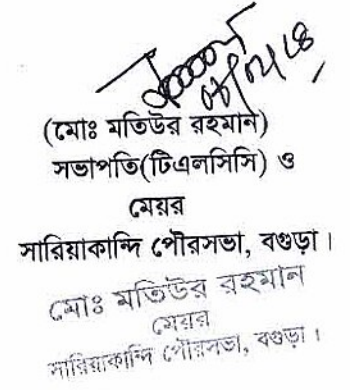 (মোঃ মতিউর রহমান)
সভাপতি(টিএলসিসি) ও
মেয়র
সারিয়াকান্দি পৌরসভা, বগুড়া।
মোঃ মতিউর রহমান
মেয়র
সারিয়াকান্দি পৌরসভা, বগুড়া।